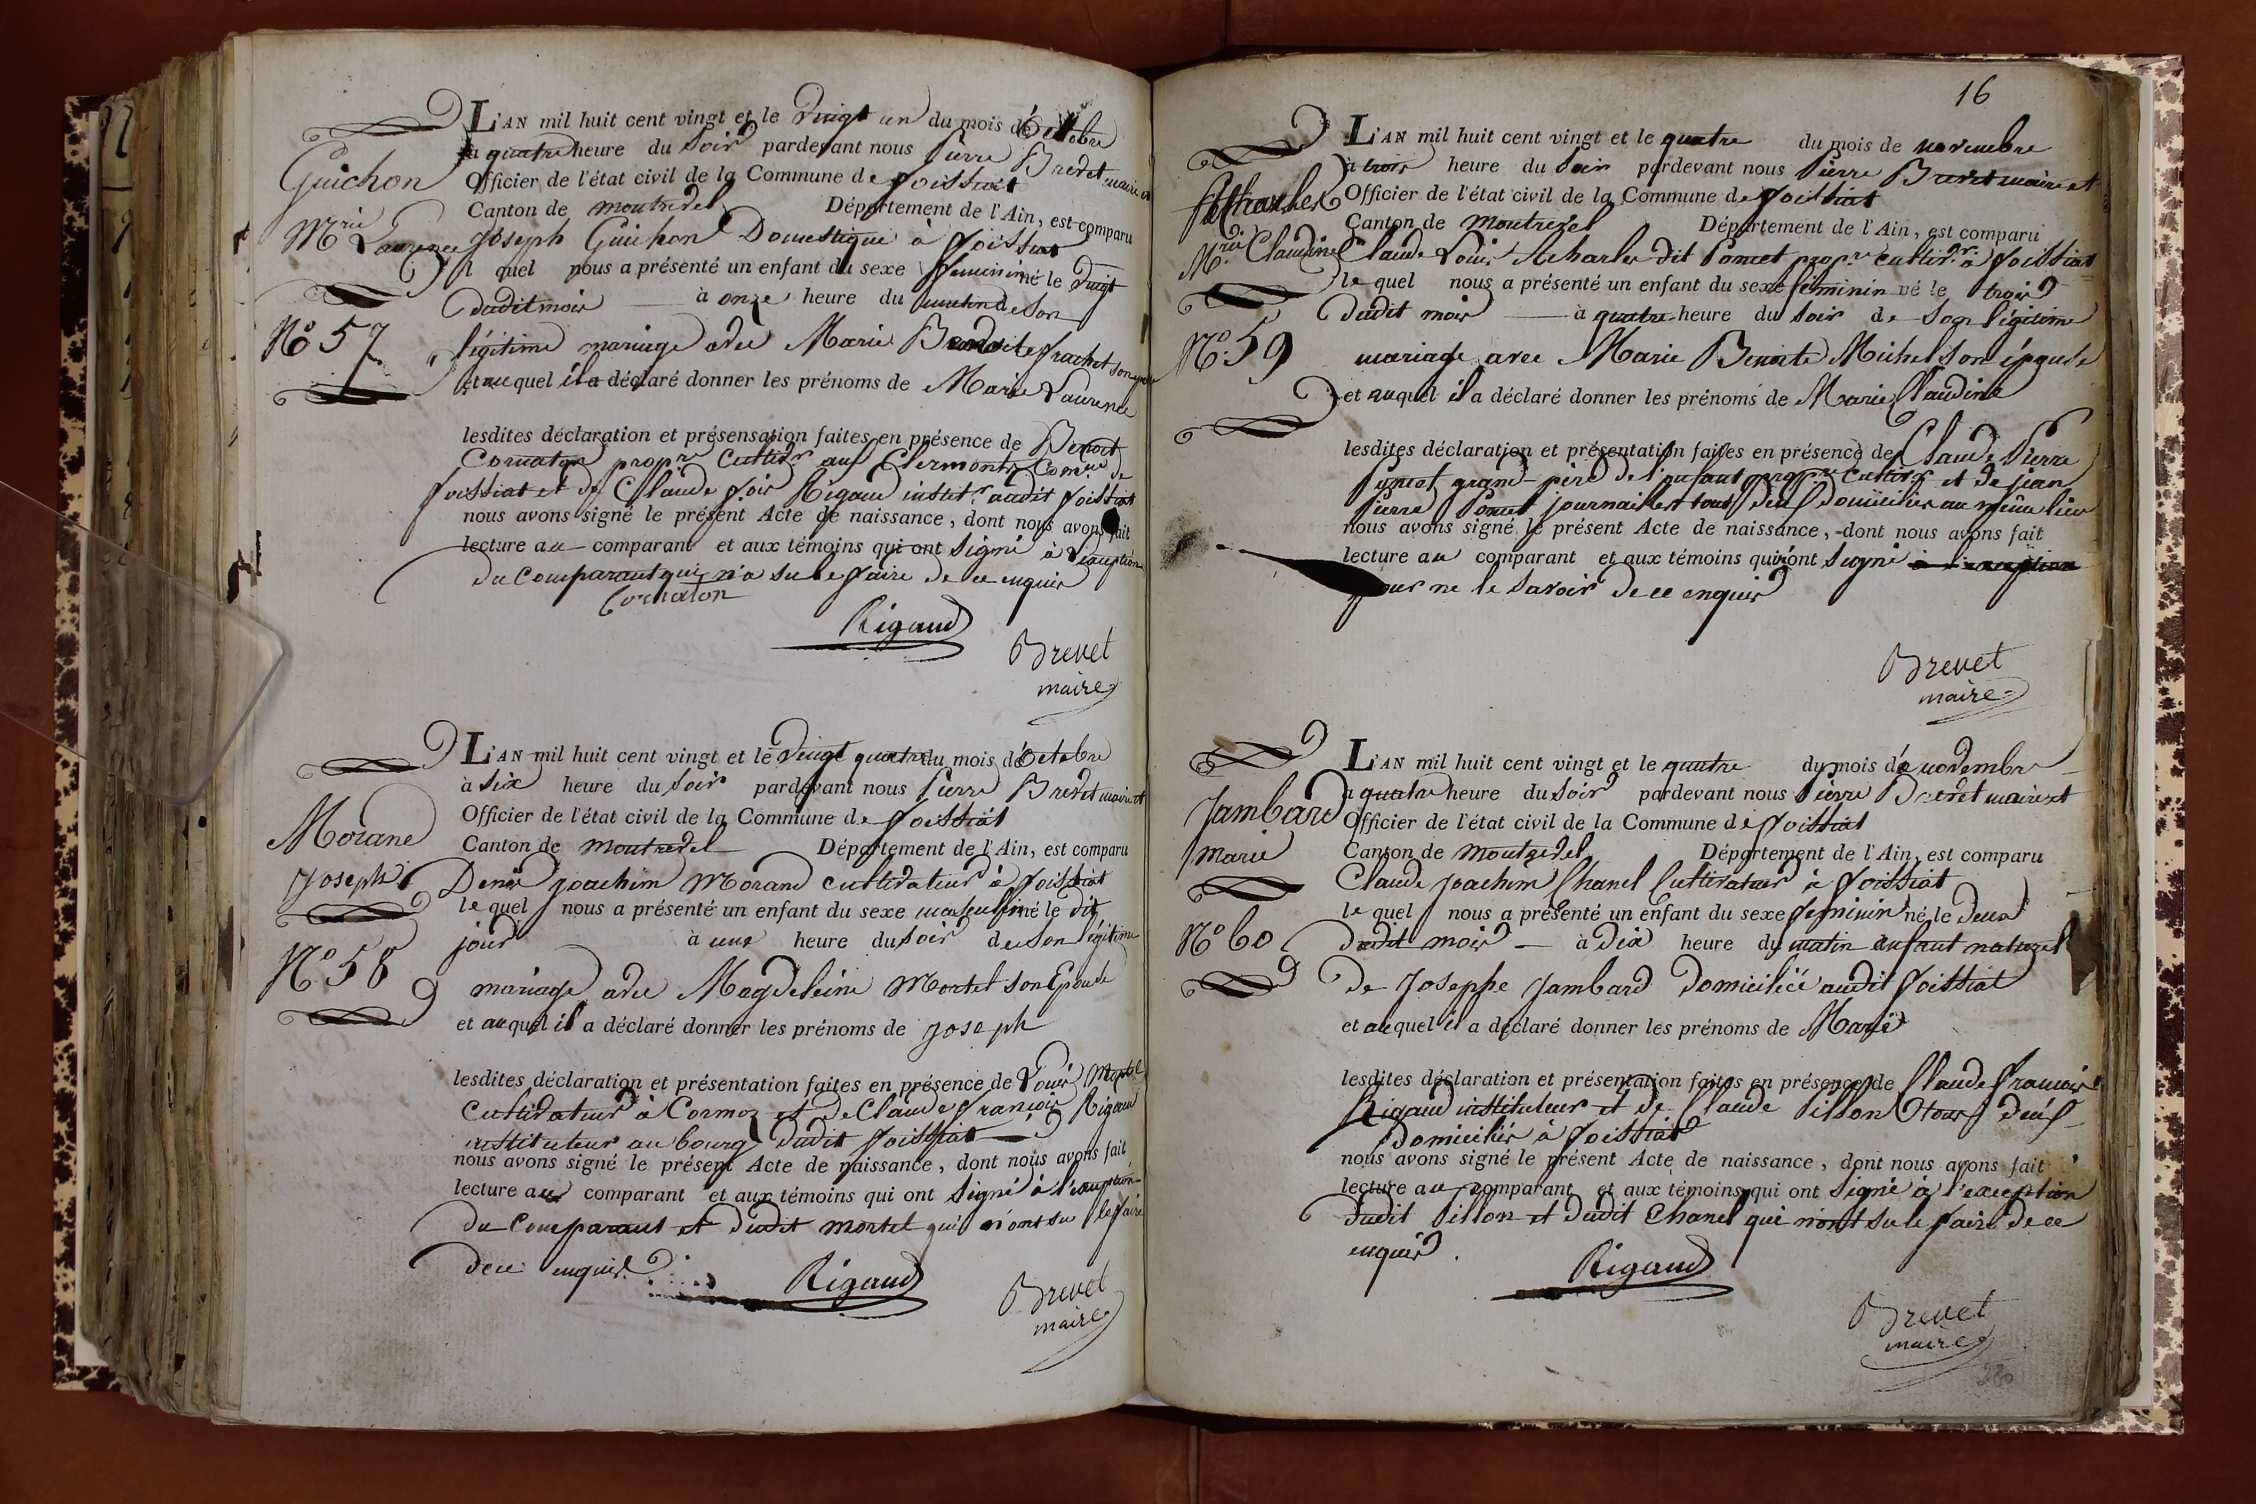 Guichon
Mrie Laurence
No 57
L'AN mil huit cent vingt et le Vingt un du mois d'octobre
à quatre heure du Soir pardevant nous Pierre Brevet maire et
Officier de l'état civil de la Commune de foissiat
Canton de montrevel Département de l'Ain, est comparu
Joseph Guichon Domestique à foissiat
l quel nous a présenté un enfant du sexe feminin né le Vingt
dudit mois à onze heure du matin de son
légitime mariage avec Marie Benoite frachet son
et auquel il a déclaré donner les prénoms de Marie Laurence
lesdites déclaration et présensation faites en présence de Benoit
Cornaton propre Cultivr au Clermonts Comne de
foissiat et de Claude fois Rigaud institr audit foissiat
nous avons signé le présent Acte de naissance, dont nous avons fait
lecture au comparant et aux témoins qui ont signé à l'exception
du Comparant qui n'a su le faire de ce enquis
Cornaton
Rigaud
Brevet
maire
Morand
Joseph
No 58
L'AN mil huit cent vingt et le Vingt quatre du mois d'octobre
à six heure du soir pardevant nous Pierre Brevet maire et
Officier de l'état civil de la Commune de foissiat
Canton de montrevel Département de l'Ain, est comparu
Denis joachim Morand cultivateur à foissiat
le quel nous a présenté un enfant du sexe masculin né le dit
jour à une heure du soir de son légitime
mariage avec Magdeleine Mortel son Epouse
et auquel il a déclaré donner les prénoms de joseph
lesdites déclaration et présentation faites en présence de Louis Mortel
Cultivateur à Cormoz et de Claude françois Rigaud
instituteur au bourg dudit foissiat
nous avons signé le présent Acte de naissance, dont nous avons fait
lecture au comparant et aux témoins qui ont signé à l'exception
du Comparant et dudit mortel qui n'ont su le faire
de ce enquis
Rigaud
Brevet
maire
16
Acharles
Mrie Claudine
No 59
L'AN mil huit cent vingt et le quatre du mois de novembre
à trois heure du soir pardevant nous Pierre Brevet maire et
Officier de l'état civil de la Commune de foissiat
Canton de Montrevel Département de l'Ain, est comparu
Claude Louis Acharles dit Poncet propre cultivr à foissiat
le quel nous a présenté un enfant du sexe féminin né le trois
dudit mois à quatre heure du soir de son légitime
mariage avec Marie Benoite Michel son épouse
et auquel il a déclaré donner les prénoms de Marie Claudine
lesdites déclaration et présentation faites en présence de Claude Pierre
Poncet grand-père de l'enfant propre cultivr et de jean
Pierre Poncet journalier tous deux domiciliés au même lieu
nous avons signé le présent Acte de naissance, dont nous avons fait
lecture au comparant et aux témoins qui n'ont signé à l'exception
pour ne le savoir de ce enquis
Brevet
maire
Jambard
Marie
No 60
L'AN mil huit cent vingt et le quatre du mois de novembre
à quatre heure du soir pardevant nous Pierre Brevet maire et
Officier de l'état civil de la Commune de foissiat
Canton de Montrevel Département de l'Ain, est comparu
Claude Joachim Chanel Cultivateur à foissiat
le quel nous a présenté un enfant du sexe feminin né le deux
dudit mois à dix heure du matin enfant naturel
de Josephe Jambard domiciliée audit foissiat
et auquel il a déclaré donner les prénoms de Marie
lesdites déclaration et présentation faites en présence de Claude françois
Rigaud instituteur et de Claude Pillon tous deux
domiciliés à foissiat
nous avons signé le présent Acte de naissance, dont nous avons fait
lecture au comparant et aux témoins qui ont signé à l'exception
dudit Pillon et dudit Chanel qui n'ont su le faire de ce
enquis
Rigaud
Brevet
maire